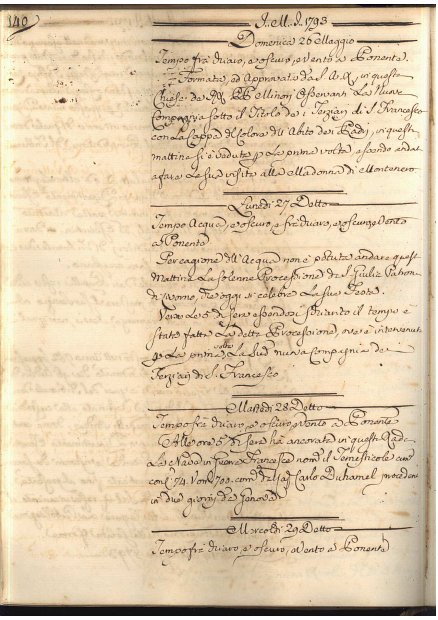 140
J. M. J. 1793
Domenica 26 Maggio
Tempo frà chiaro, e oscuro, e Vento a Ponente
Formata, ed Approvata da S. A. R. in questa
Chiesa de PP. Minori Osservanti La Nuova
Compagnia sotto il Titolo de i Terziari di S. Francesco
con La Cappa del Colore dell Abito dei Padri, in questa
mattina si è veduta p La prima volta essendo andat
a fare La sua visita alla Madonna di Montenero
Lunedi 27 Detto
Tempo Acqua, e oscuro, e frà chiaro, e oscuro e Vento
a Ponente
Per cagione dell Acqua non è potuta andare questa
Mattina La solenne Processione di S. Giulia
di Livorno, che oggi si celebra La sua Festa
Verso Le 5 di sera essendosi il tempo è
stata fatta La detta Processione, ove è intervenuta
p La prima volta La Sud nuova Compagnia de
Terziari di S. Francesco
Martedi 28 Detto
Tempo frà chiaro, e oscuro, e Vento a Ponente
Alle ore 5 di sera hà ancorato in questa Rada
La Nave Francese nom il Temistocle con
74 700 com dal Carlo Duhamel procedente
in due giorni da Genova
Mercoldi 29 Detto
Tempo frà chiaro, e oscuro, e Vento a Ponente